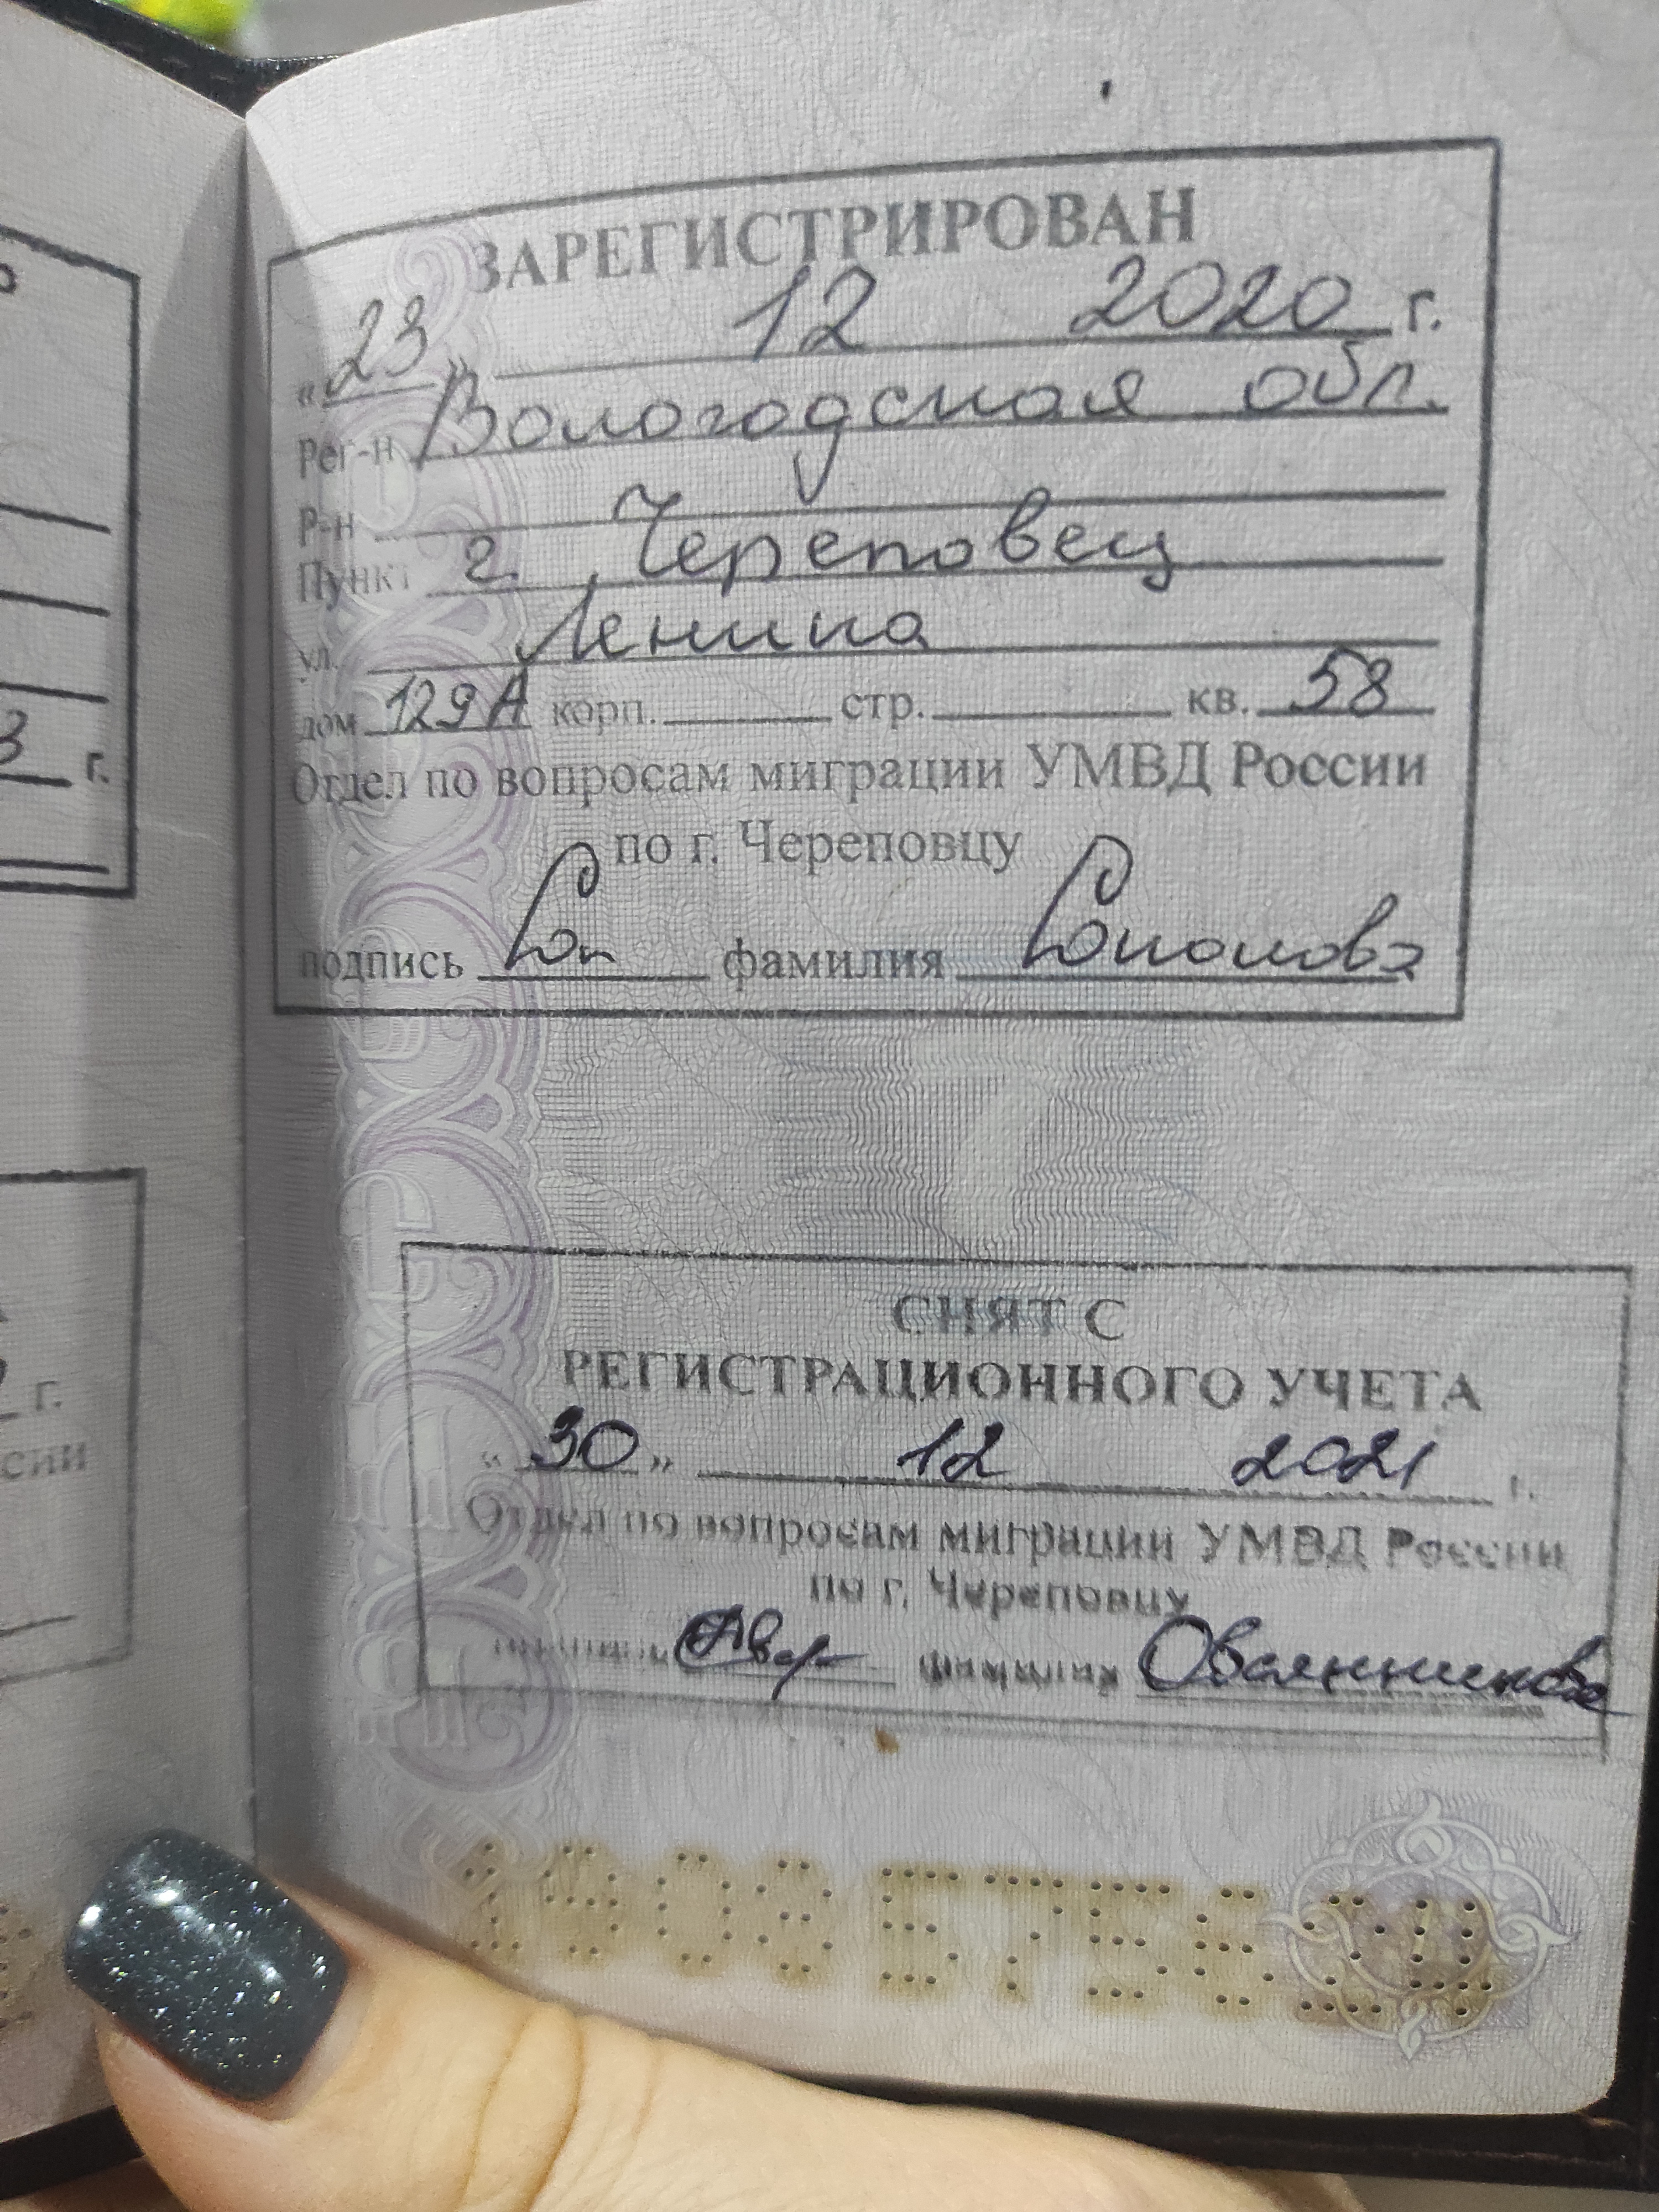 ЗАРЕГИСТРИРОВАН
«23» 12 2020 г.
Рег-н Вологодская обл.
Р-н
Пункт г. Череповец
ул. Ленина
дом 129А корп. стр. кв. 58
Отдел по вопросам миграции УМВД России
по г. Череповцу
подпись фамилия
СНЯТ С
РЕГИСТРАЦИОННОГО УЧЕТА
«30» 12 2021 г.
Отдел по вопросам миграции УМВД России
по г. Череповцу
фамилия Овсянникова
3 г.
г.
сии